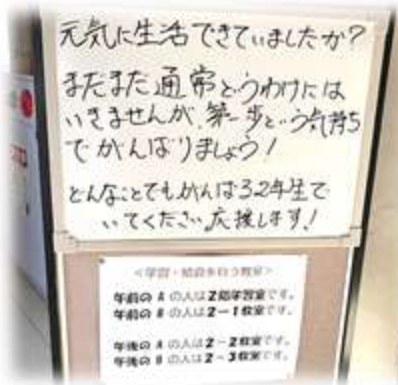 元気に生活できていましたか?
まだまだ通常というわけには
いきませんが、第一歩という気持ち
でがんばりましょう!
どんなことでもがんばる2年生で
いてください。応援します!
<学習・給食を行う教室>
午前の A の人は2階学習室です。
午前の B の人は2-1教室です。
午後の A の人は2-2教室です。
午後の B の人は2-3教室です。